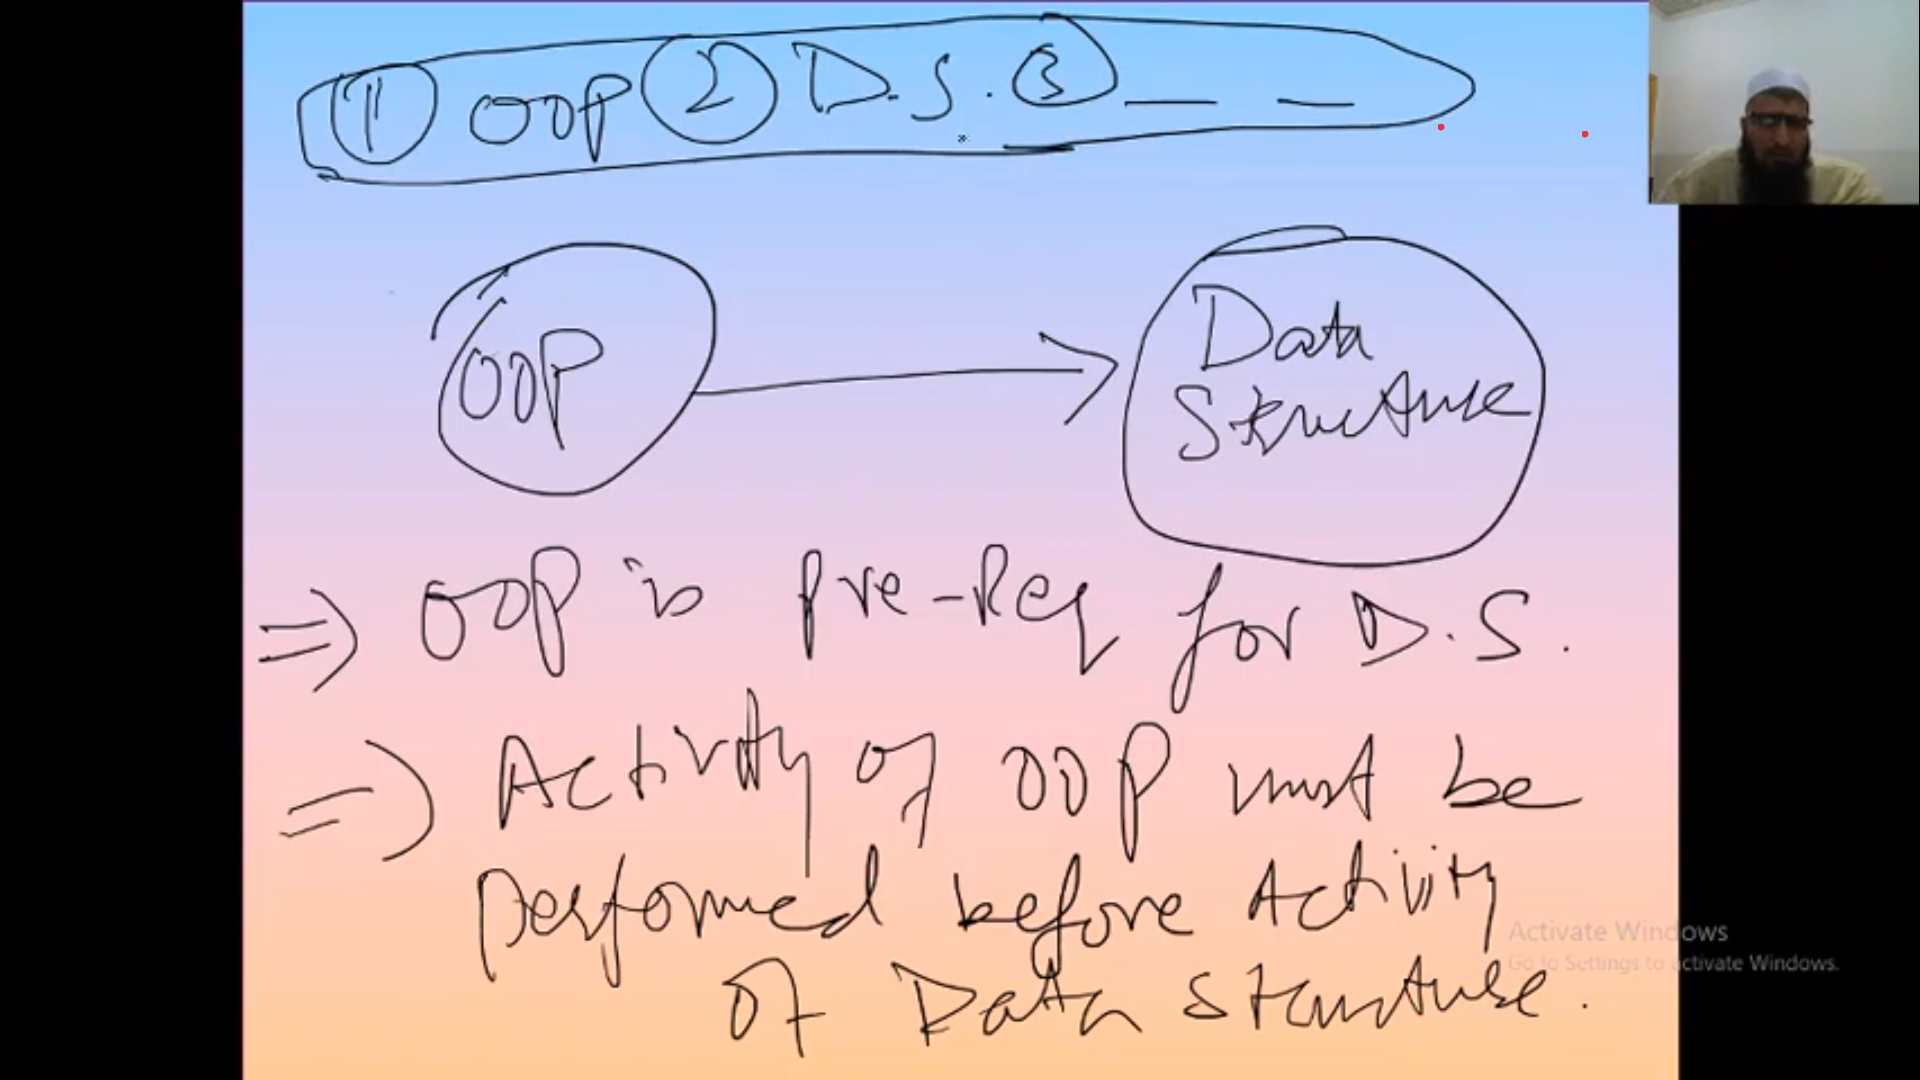 ① OOP ② D.S. ③ __ __
OOP
Data
Structure
⇒ OOP is Pre-Req for D.S.
⇒ Activity of OOP must be
performed before Activity
of Data Structure.
Activate Windows
Go to Settings to activate Windows.